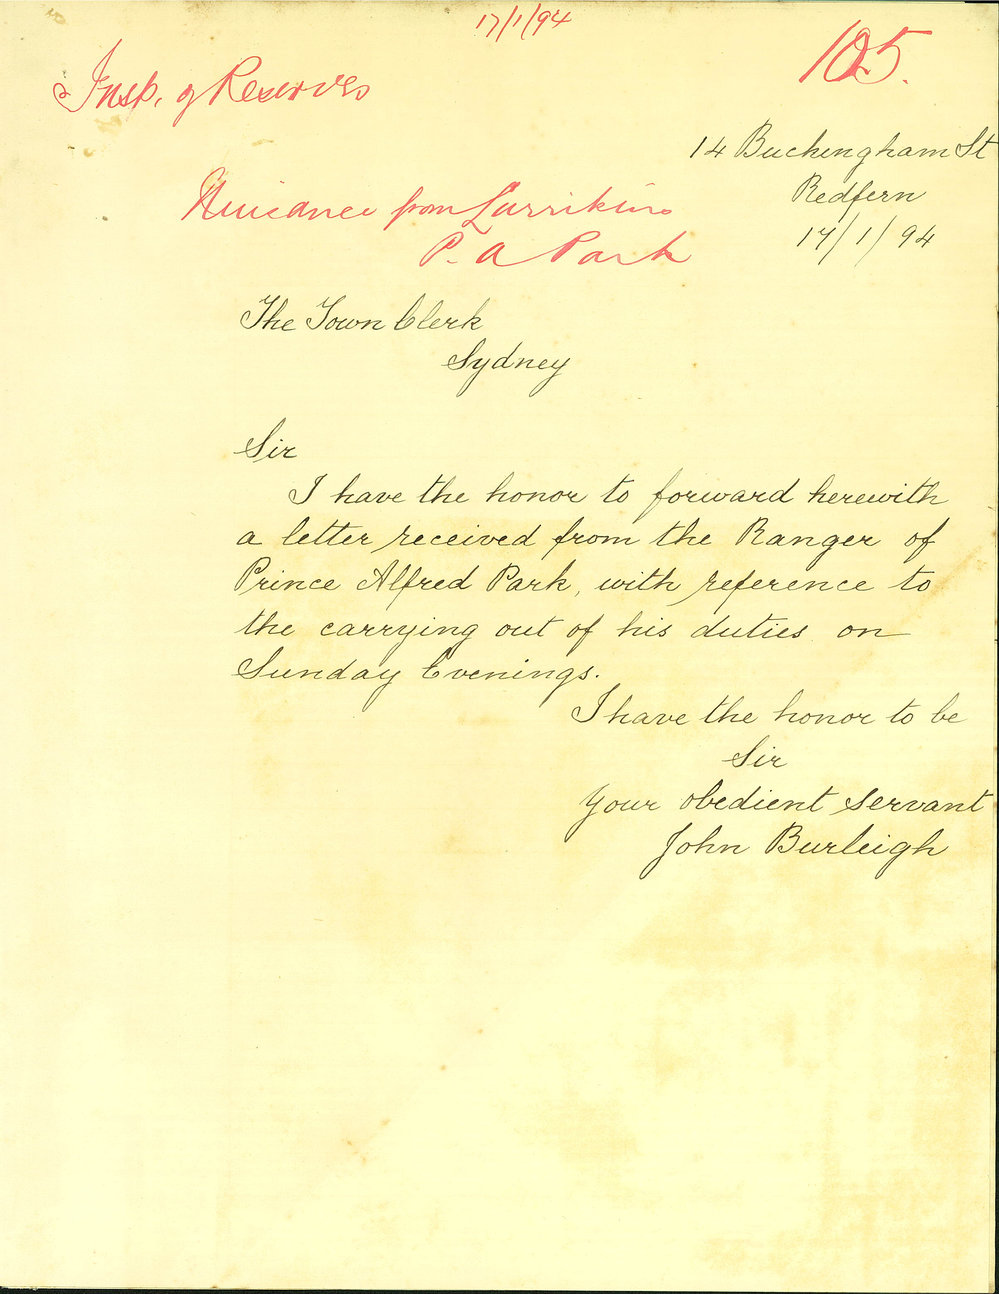 17/1/94
105.
Insp. of Reserves
14 Buckingham St
Redfern
17/1/94
Nuisance from Larrikins
P. A Park
The Town Clerk
Sydney
Sir
I have the honor to forward herewith
a letter received from the Ranger of
Prince Alfred Park, with reference to
the carrying out of his duties on
Sunday Evenings.
I have the honor to be
Sir
Your obedient servant
John Burleigh